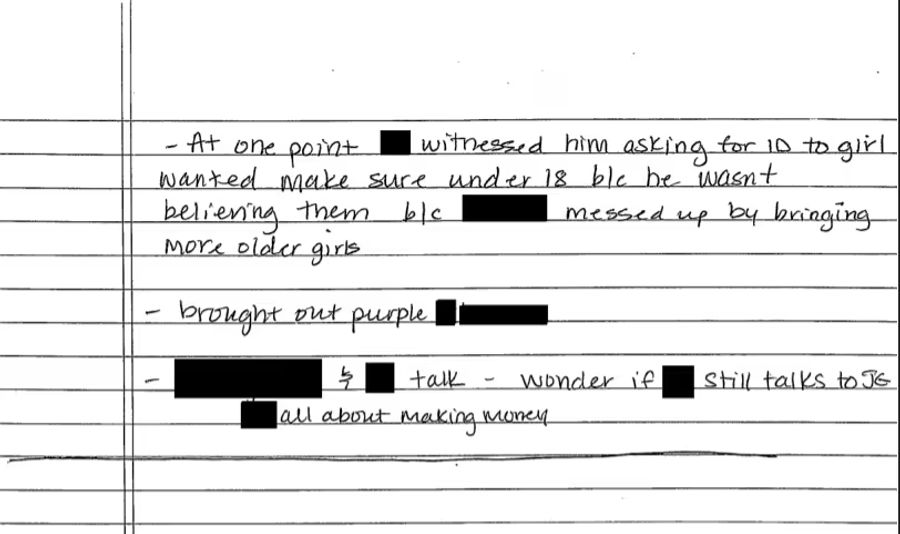 - At one point witnessed him asking for ID to girl
wanted make sure under 18 b/c he wasnt
believing them b/c messed up by bringing
more older girls
- brought out purple
- & talk - wonder if still talks to JG
all about making money